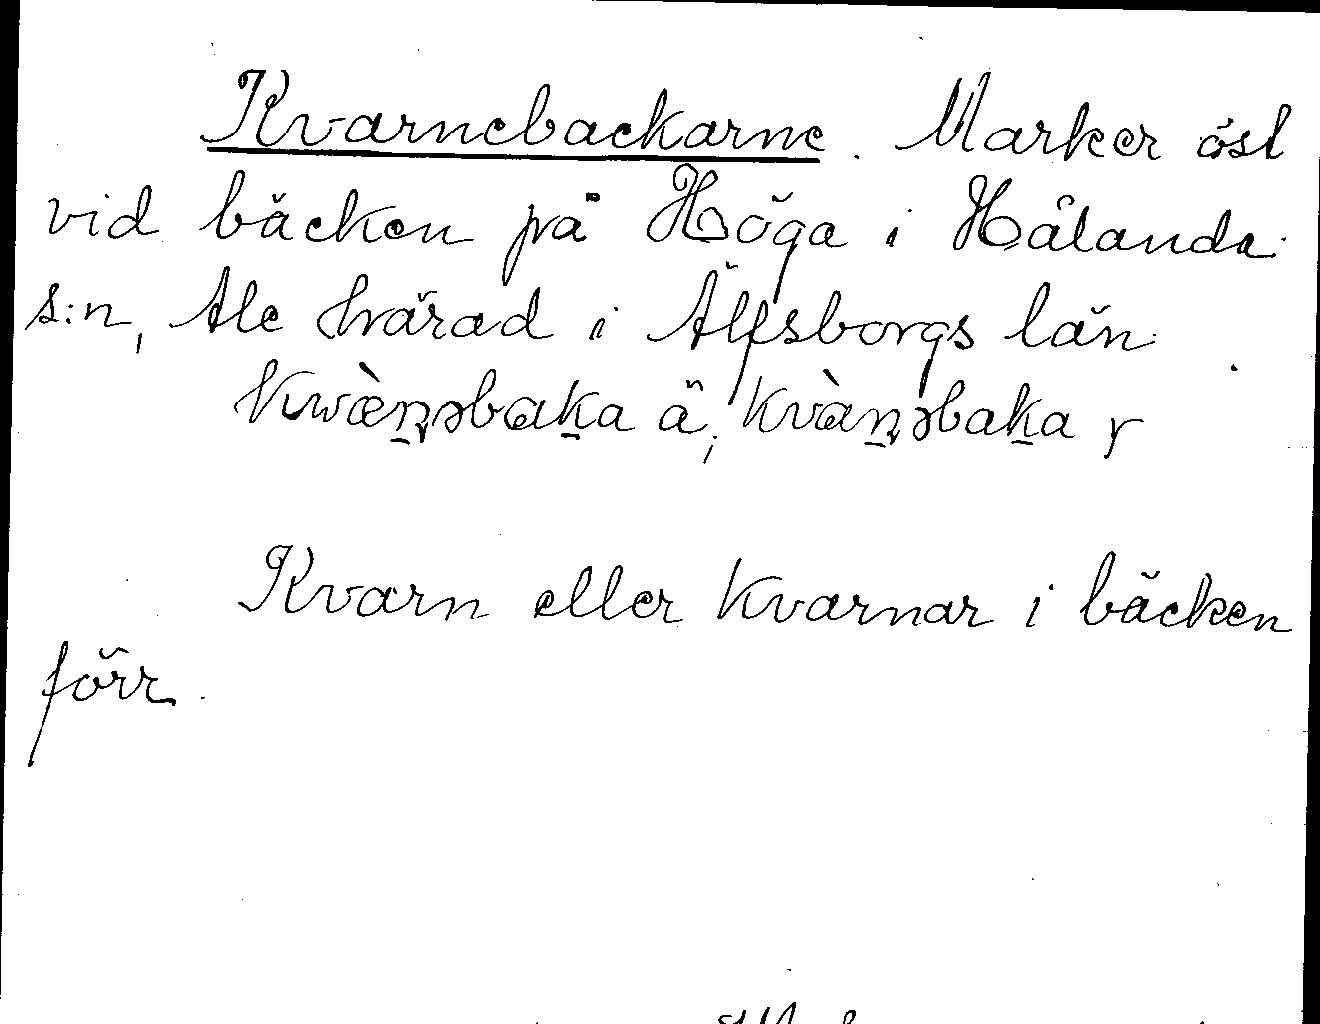 Kvarnebackarne. Marker öst
vid bäcken på Höga i Hålanda
s:n, Ale härad i Älfsborgs län.
kwæ̀ṉəbaḵa ä; kvàṉəbaḵa r
Kvarn eller kvarnar i bäcken
förr.